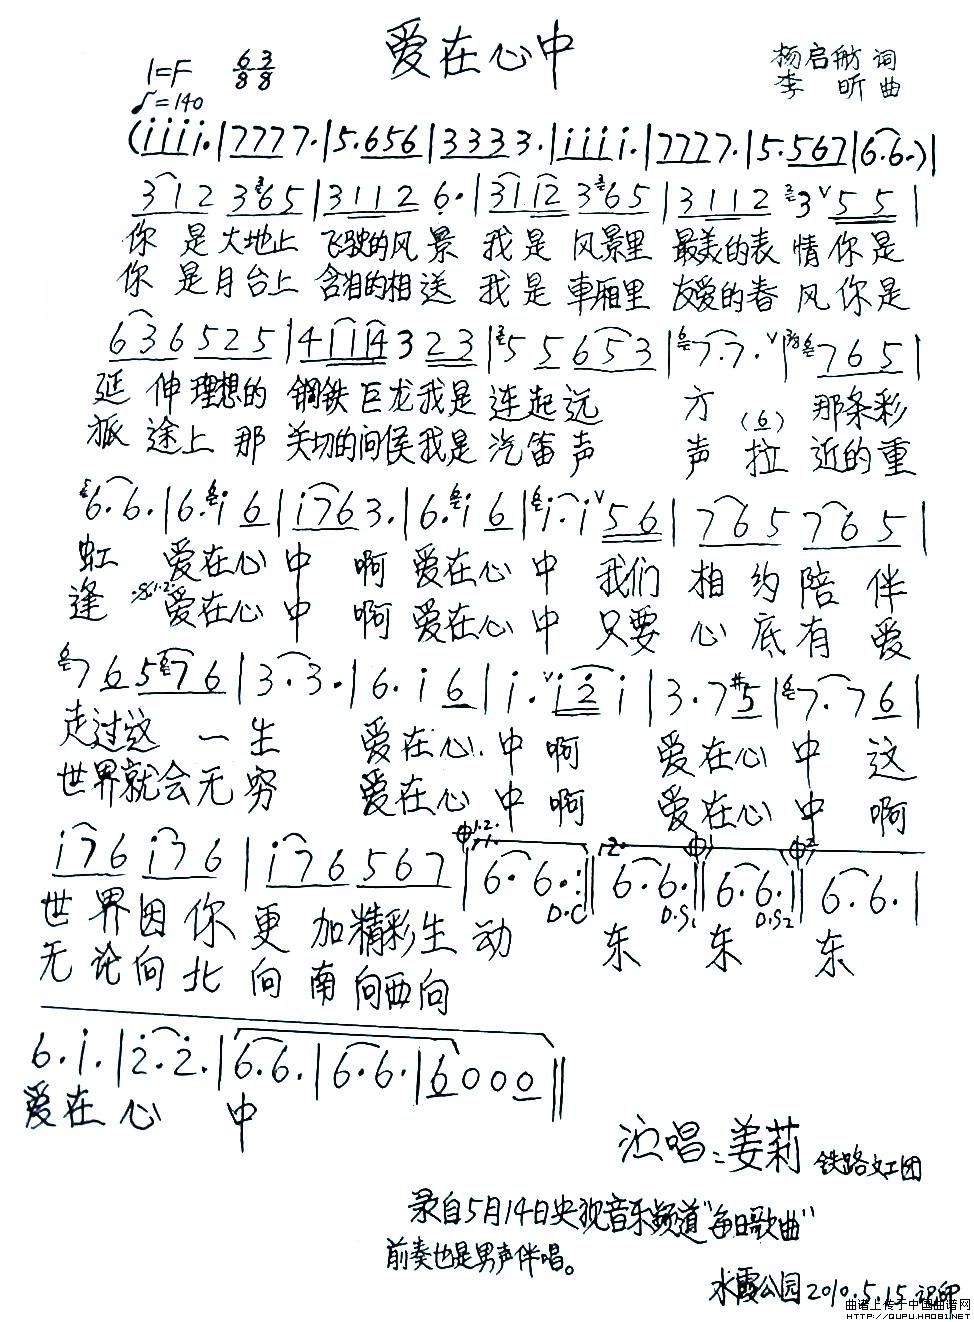 爱在心中
1=F 6/8 3/8
♪=140
杨启舫 词
李 昕 曲
(i i i i. | 7 7 7 7. | 5. 6 5 6 | 3 3 3 3. | i i i i. | 7 7 7 7. | 5. 5 6 7 | 6. 6. ) |
3 1 2 3 6 5 | 3 1 1 2 6. | 3 1 1 2 3 6 5 | 3 1 1 2 3 V 5 5 |
你 是 大地上 飞驶的风 景 我 是 风景里 最美的表 情 你 是
你 是 月台上 含泪的相 送 我 是 车厢里 友爱的春 风 你 是
6 3 6 5 2 5 | 4 1 1 4 3 2 3 | 5 5 6 5 3 | 7. 7. V | 3/8 7 6 5 |
延 伸 理想的 钢铁 巨龙我是 连起远 方 那条彩
旅 途上 那 关切的问侯我是 汽笛声 声 (6) 拉 近的重
6. 6. | 6. i 6 | i 7 6 3. | 6. i 6 | i. i V 5 6 | 7 6 5 7 6 5 |
虹 爱在心 中 啊 爱在心 中 我们 相 约 陪 伴
逢 爱在心 中 啊 爱在心 中 只要 心 底 有 爱
7 6 5 7 6 | 3. 3. | 6. i 6 | i. V i 2 i | 3. 7 #5 | 7. 7 6 |
走过这 一 生 爱 在 心 中 啊 爱 在 心 中 这
世界就会 无 穷 爱 在 心 中 啊 爱 在 心 中 啊
i 7 6 i 7 6 | i 7 6 5 6 7 | 6. 6. :|| 6. 6. || 6. 6. || 6. 6. |
D.C D.S1 D.S2
世 界 因 你 更 加精彩生 动 东 东 东
无 论 向 北 向 南 向西向
6. i. | 2. 2. | 6. 6. | 6. 6. | 6 0 0 0 ||
爱 在 心 中
演唱:姜莉 铁路文工团
录自5月14日央视音乐频道"每日歌曲"
前奏也是男声伴唱。
水霞公园2010.5.15 记印
曲谱上传于中国曲谱网
HTTP://QUPU.HAO81.NET